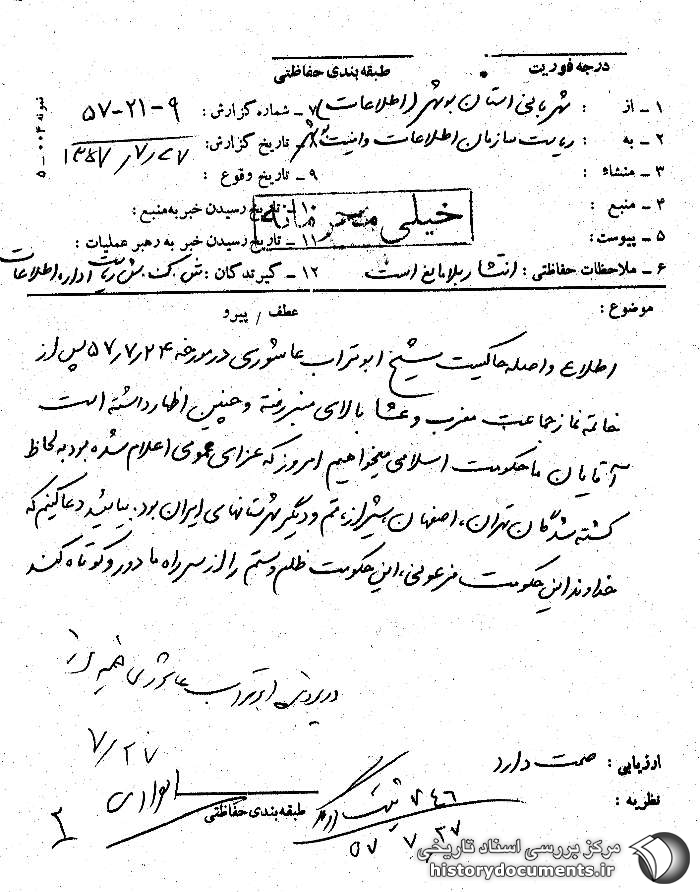 درجه فوریت
طبقه بندی حفاظتی
۱ ـ از : شهربانی استان بوشهر (اطلاعات)
۷ ـ شماره گزارش : ۹-۲۱-۵۷
۲ ـ به : ریاست سازمان اطلاعات و امنیت بوشهر
۸ ـ تاریخ گزارش : ۱۳۵۷/۷/۲۷
۳ ـ منشاء :
۹ ـ تاریخ وقوع :
۴ ـ منبع :
۱۰ ـ تاریخ رسیدن خبر به منبع :
خیلی محرمانه
۵ ـ پیوست :
۱۱ ـ تاریخ رسیدن خبر به رهبر عملیات :
۶ ـ ملاحظات حفاظتی : انتشار بلامانع است
۱۲ ـ گیرندگان : ش ک ش ریاست اداره اطلاعات
موضوع :
عطف / پیرو
اطلاع واصله حاکیست شیخ ابوتراب عاشوری در مورخه ۵۷/۷/۲۴ پس از
خاتمه نماز جماعت مغرب و عشا بالای منبر رفته و چنین اظهار داشته است
آقایان ما حکومت اسلامی میخواهیم امروز که عزای عمومی اعلام شده بود به لحاظ
کشته شدگان تهران، اصفهان، شیراز، قم و دیگر شهرستانهای ایران بود. بیائید دعا کنیم که
خداوند این حکومت فرعونی، این حکومت ظلم و ستم را از سر راه ما دور و کوتاه کند
در پرونده ابوتراب عاشوری
۷/۲۷
ارزیابی : صحت دارد
نظریه :
طبقه بندی حفاظتی
۷۴۶ ثبت
۵۷ ۷ ۲۷
۲
مرکز بررسی اسناد تاریخی
historydocuments.ir